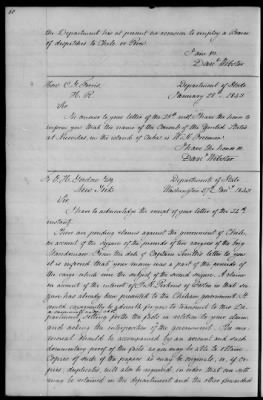 the Department has at present no occasion to employ a Bearer
of despatches to Chile or Peru.
I am &c.
Danl. Webster
Department of State
H. R. January 28th 1843
Sir
In answer to your letter of the 28th inst. I have the honor to
inform you that the name of the Consul of the United States
at in the island of Cuba is
I have the honor &c.
Danl. Webster
Esq. Department of State
New York Washington 1843
Sir.
I have to acknowledge the receipt of your letter of the 24th
instant.
There are pending claims against the government of Chile,
on account of the seizure of the proceeds of two cargoes of the brig
Macedonian. From the date of Captain Smith's letter to you
it is inferred that your money was a part of the proceeds of
the cargo which were the subject of the second seizure. A claim
on account of the interest of Perkins of Boston in that sei
zure has already been presented to the Chilean government. It
would be advisable for you to transmit to this De
partment, setting forth the facts in relation to your claim
and asking the interposition of the government. The me
morial should be accompanied by an account and such
documentary proof of the facts as you may be able to obtain.
Copies of such of the papers as may be requisite, or, if ori
ginals, duplicates, will also be required, in order that one set
may be retained in the department and the other forwarded